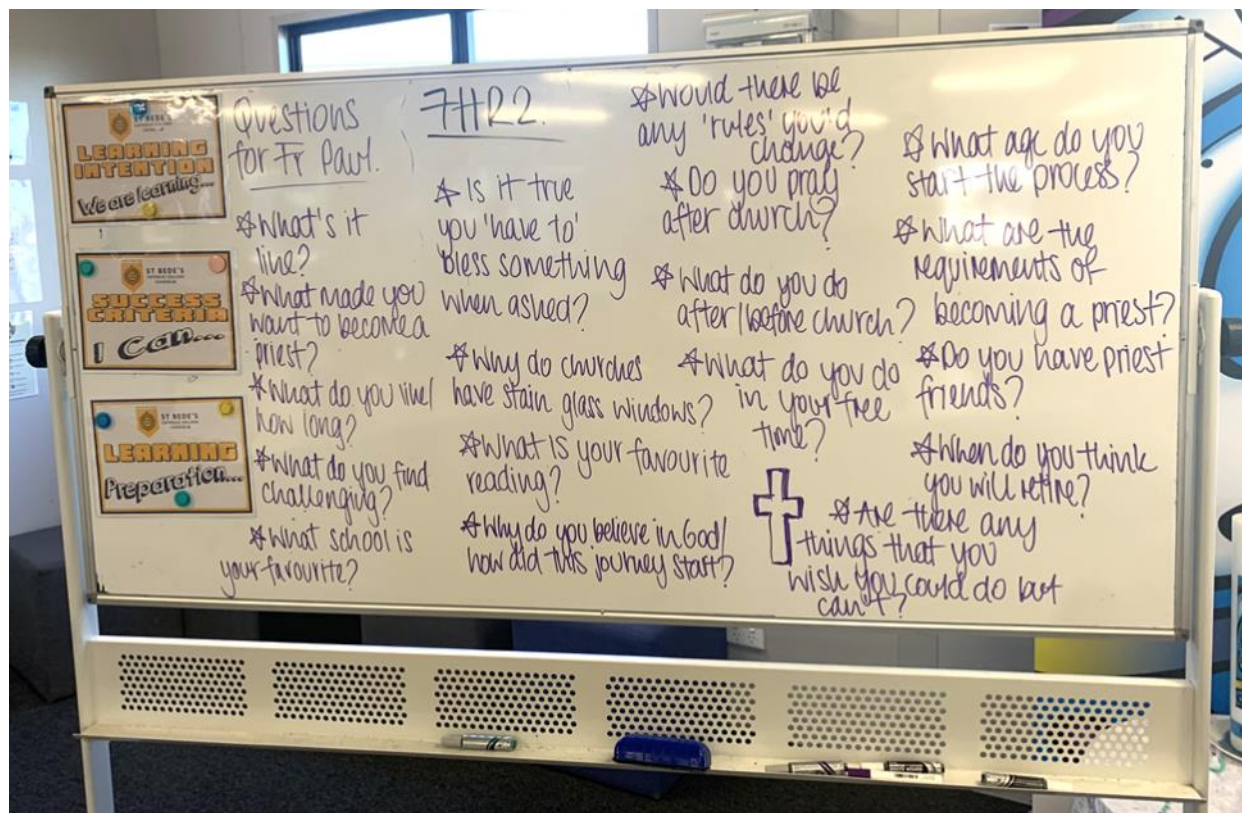 ST BEDE'S
LEARNING
INTENTION
We are learning...
ST BEDE'S
CATHOLIC COLLEGE
SUCCESS
CRITERIA
I Can...
ST BEDE'S
CATHOLIC COLLEGE
LEARNING
Preparation...
Questions
for Fr Paul.
7HR2.
☆What's it
like?
☆What made you
want to become a
priest?
☆What do you like/
how long?
☆What do you find
challenging?
☆What school is
your favourite?
☆Is it true
you 'have to'
bless something
when asked?
☆Why do churches
have stain glass windows?
☆What is your favourite
reading?
☆Why do you believe in God/
how did this journey start?
☆Would there be
any 'rules' you'd
change?
☆Do you pray
after church?
☆What do you do
after/before church?
☆What do you do
in your free
time?
☆Are there any
things that you
wish you could do but
can't?
☆What age do you
start the process?
☆What are the
requirements of
becoming a priest?
☆Do you have priest
friends?
☆When do you think
you will retire?